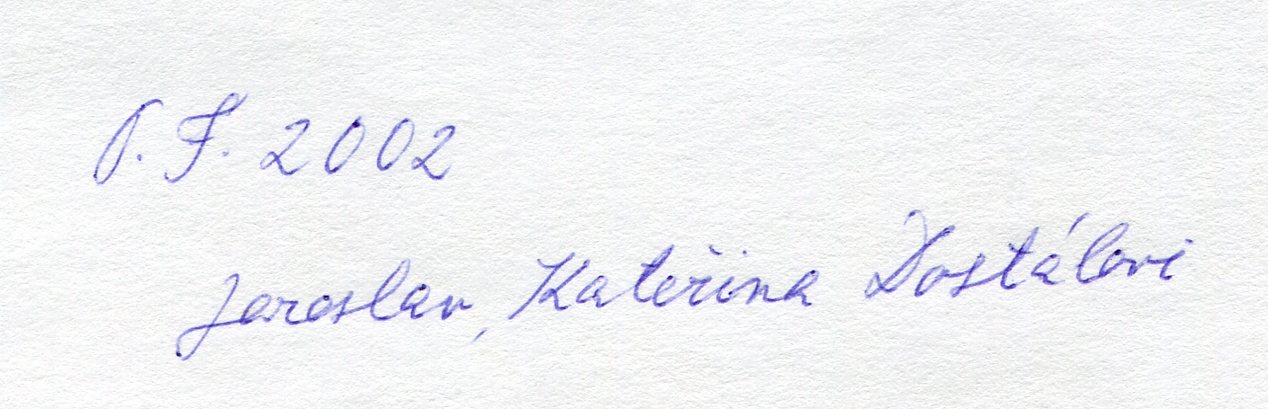 P.F. 2002
Jaroslav, Kateřina Dostálovi